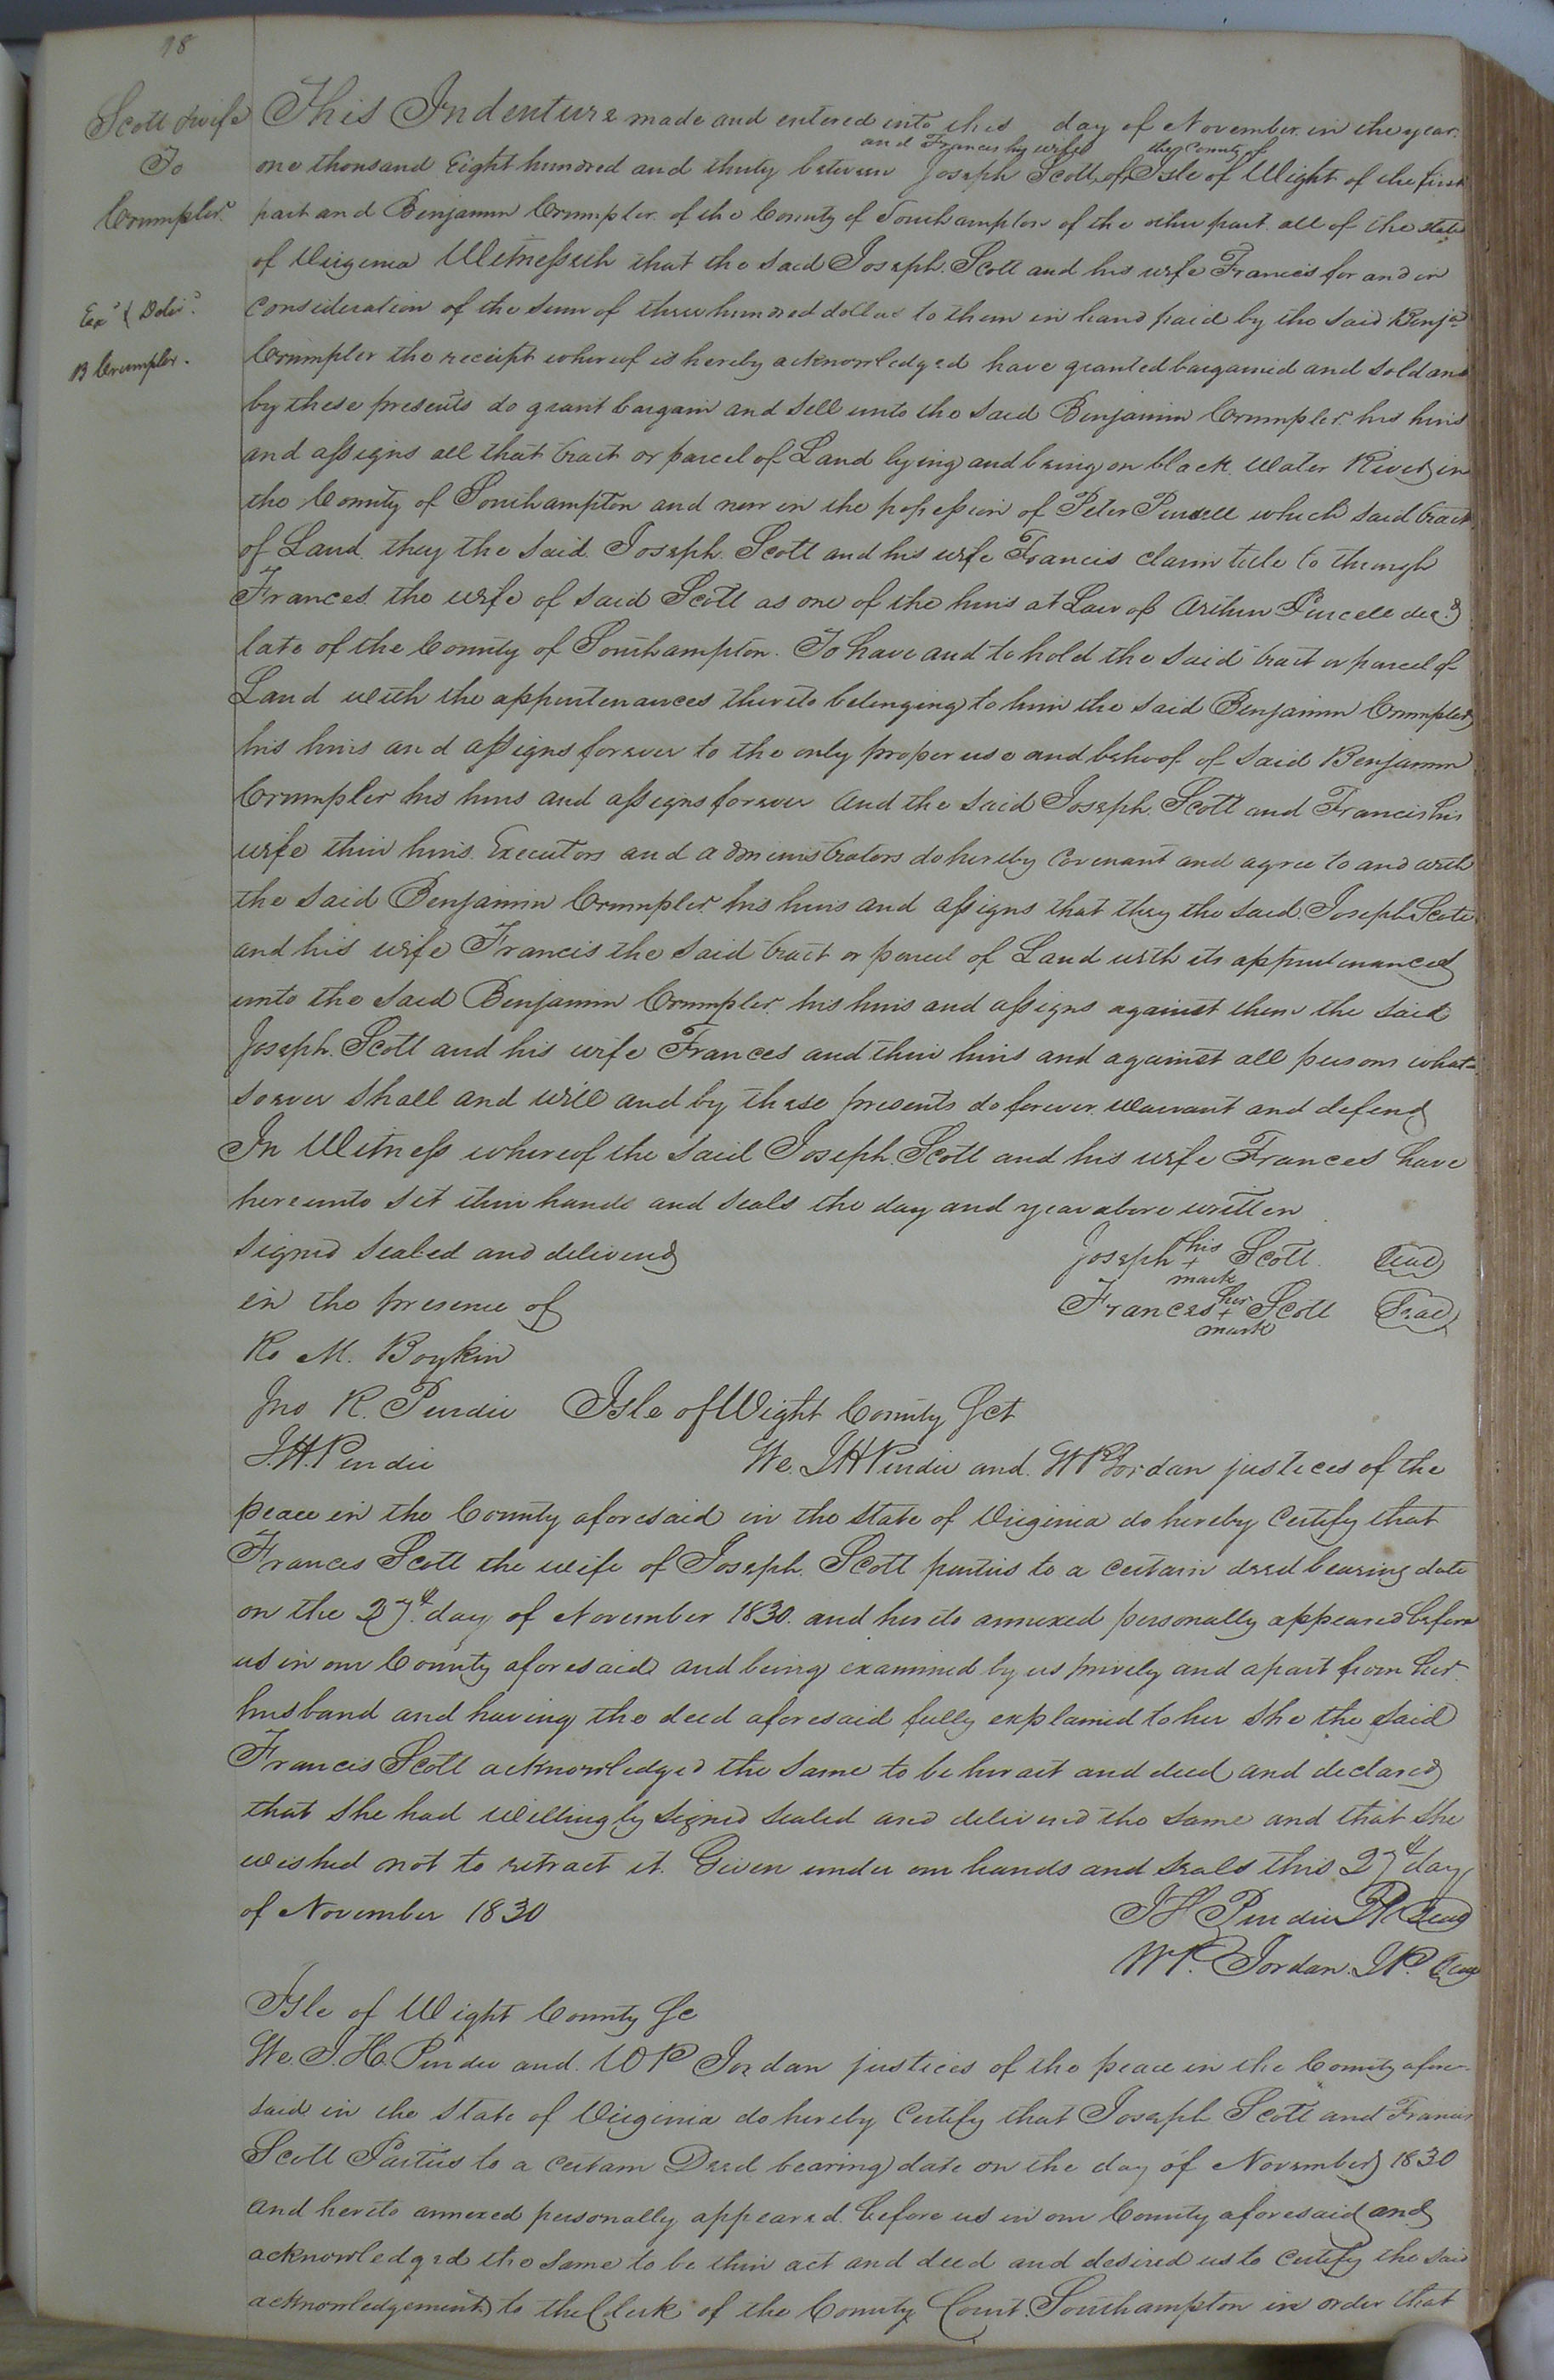 98
Scott & wife
To
Crumpler
Exd & Delid
B Crumpler.
This Indenture made and entered into this day of November in the year
and Frances his wife the County of
one thousand Eight hundred and thirty between Joseph Scott of Isle of Wight of the first
part and Benjamin Crumpler of the County of Southampton of the other part all of the state
of Virginia Witnesseth that the said Joseph Scott and his wife Francis for and in
consideration of the sum of three hundred dollars to them in hand paid by the said Benja
Crumpler the receipt whereof is hereby acknowledged have granted bargained and sold and
by these presents do grant bargain and sell unto the said Benjamin Crumpler his heirs
and assigns all that tract or parcel of Land lying and being on black Water River in
the County of Southampton and now in the possession of Peter Purcell which said tract
of Land they the said Joseph Scott and his wife Francis claim title to through
Frances the wife of said Scott as one of the heirs at Law of Arthur Purcell decd
late of the County of Southampton. To have and to hold the said tract or parcel of
Land with the appurtenances thereto belonging to him the said Benjamin Crumpler
his heirs and assigns forever to the only proper use and behoof of said Benjamin
Crumpler his heirs and assigns forever And the said Joseph Scott and Francis his
wife their heirs Executors and administrators do hereby covenant and agree to and with
the said Benjamin Crumpler his heirs and assigns that they the said Joseph Scott
and his wife Francis the said tract or parcel of Land with its appurtenances
unto the said Benjamin Crumpler his heirs and assigns against them the said
Joseph Scott and his wife Frances and their heirs and against all persons what-
soever shall and will and by these presents do forever warrant and defend
In Witness whereof the said Joseph Scott and his wife Frances have
hereunto set their hands and seals the day and year above written
signed sealed and delivered
Joseph his + mark Scott Seal
in the presence of
Frances her + mark Scott Seal
Ro M. Boykin
Jno R. Purdie Isle of Wight County Sct
J.H. Purdie We. J H Purdie and W P Jordan justices of the
peace in the County aforesaid in the state of Virginia do hereby certify that
Frances Scott the wife of Joseph Scott parties to a certain deed bearing date
on the 27th day of November 1830 and hereto annexed personally appeared before
us in our County aforesaid and being examined by us privily and apart from her
husband and having the deed aforesaid fully explained to her she the said
Francis Scott acknowledged the same to be her act and deed and declared
that she had willingly signed sealed and delivered the same and that she
wished not to retract it. Given under our hands and seals this 27th day
of November 1830 J H Purdie JP Seal
W P. Jordan. J P. Seal
Isle of Wight County Sc
We. J. H. Purdie and W P Jordan justices of the peace in the County afore-
said in the state of Virginia do hereby certify that Joseph Scott and Francis
Scott Parties to a certain Deed bearing date on the day of November 1830
and hereto annexed personally appeared before us in our County aforesaid and
acknowledged the same to be their act and deed and desired us to certify the said
acknowledgement to the Clerk of the County Court Southampton in order that